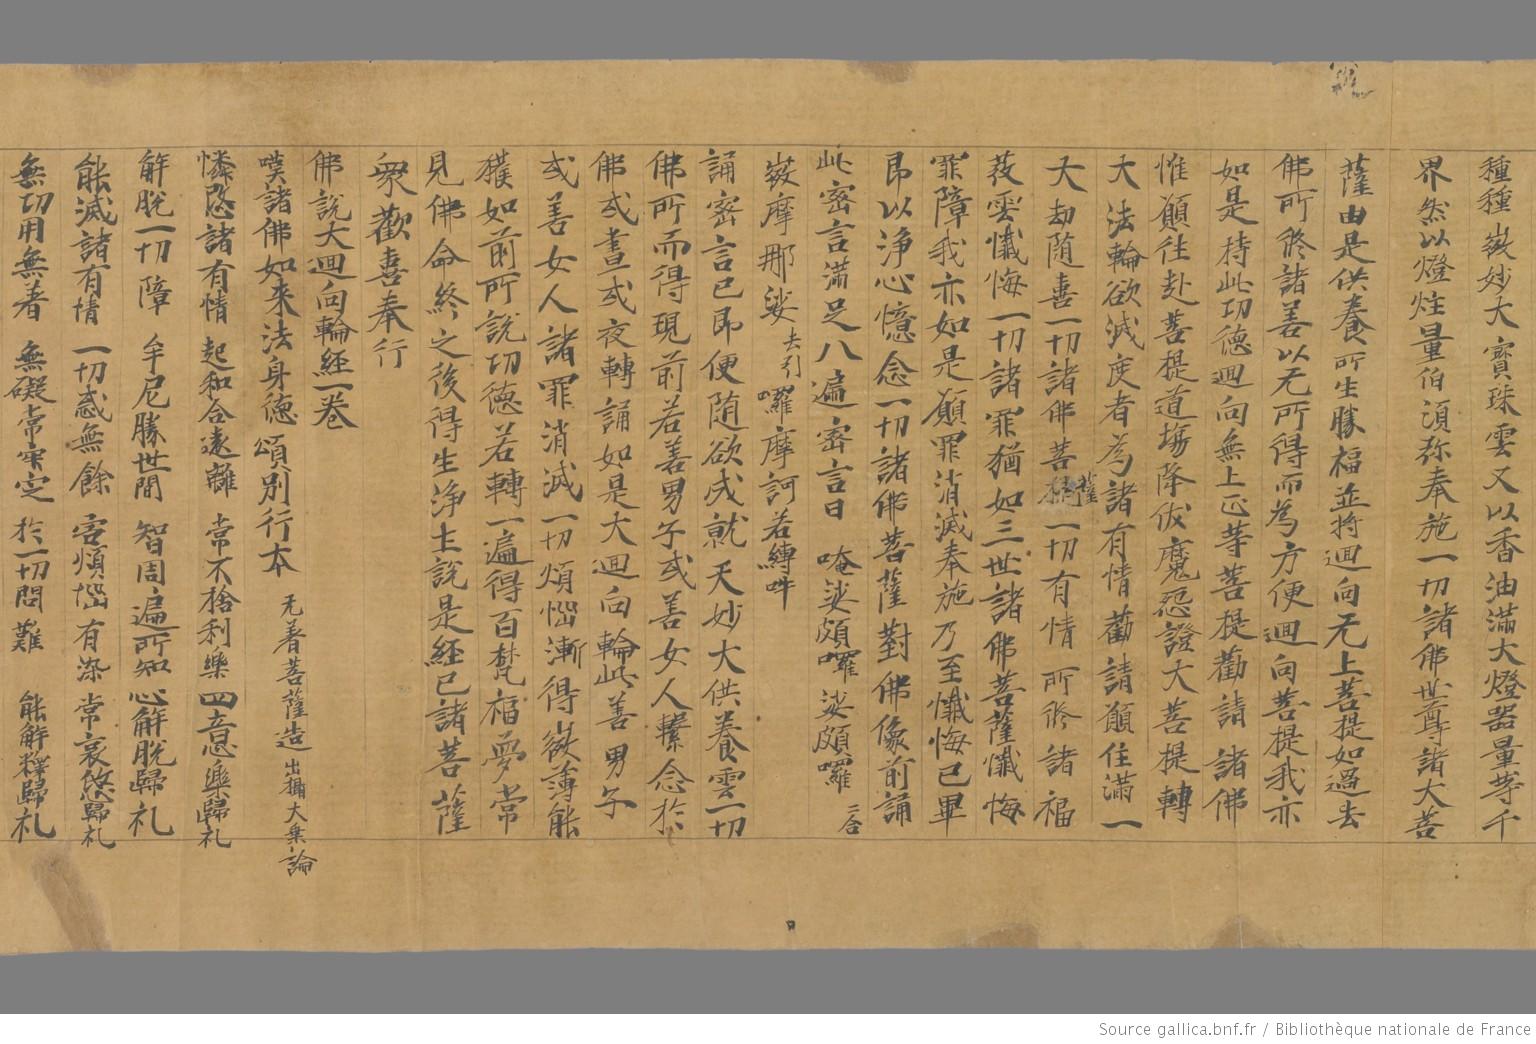 種種微妙大寶珠雲又以香油滿大燈器量等千
界然以燈炷量伯須弥奉施一切諸佛世尊諸大菩
薩由是供養所生勝福並將迴向无上菩提如過去
佛所修諸善以无所得而為方便迴向菩提我亦
如是持此功德迴向無上正等菩提勸請諸佛
惟願往赴菩提道場降伏魔怨證大菩提轉
大法輪欲滅度者為諸有情勸請願住滿一
大劫隨喜一切諸佛菩薩一切有情所修諸福
發雲懺悔一切諸罪猶如三世諸佛菩薩懺悔
罪障我亦如是願罪消滅奉施乃至懺悔已畢
即以淨心憶念一切諸佛菩薩對佛像前誦
此密言滿足八遍密言曰 唵娑頗囉娑頗囉二合
微摩那娑去引囉摩訶若縛吽
誦密言已即便隨欲成就天妙大供養雲一切
佛所而得現前若善男子或善女人繫念於
佛或晝或夜轉誦如是大迴向輪此善男子
或善女人諸罪消滅一切煩惱漸得微薄能
獲如前所說功德若轉一遍得百梵福夢常
見佛命終之後得生淨土說是經已諸菩薩
眾歡喜奉行
佛說大迴向輪經一卷
嘆諸佛如來法身德頌別行本 无著菩薩造出攝大乘論
憐愍諸有情 起和合遠離 常不捨利樂 四意樂歸礼
解脫一切障 牟尼勝世間 智周遍所知 心解脫歸礼
能滅諸有情 一切惑無餘 害煩惱有染 常哀愍歸礼
無功用無著 無礙常寂定 於一切問難 能解釋歸礼